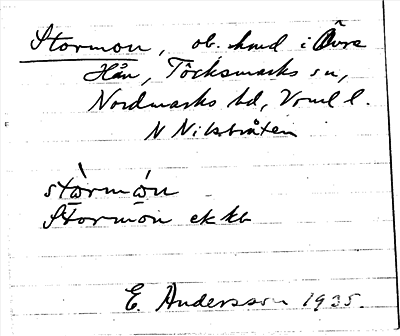 Stormon, ob. hmd i Övre
Hån, Töcksmarks sn,
Nordmarks hd, Vrml l.
N Nilsbråten
stòrmón
Stormon ek kb
E. Andersson 1935.